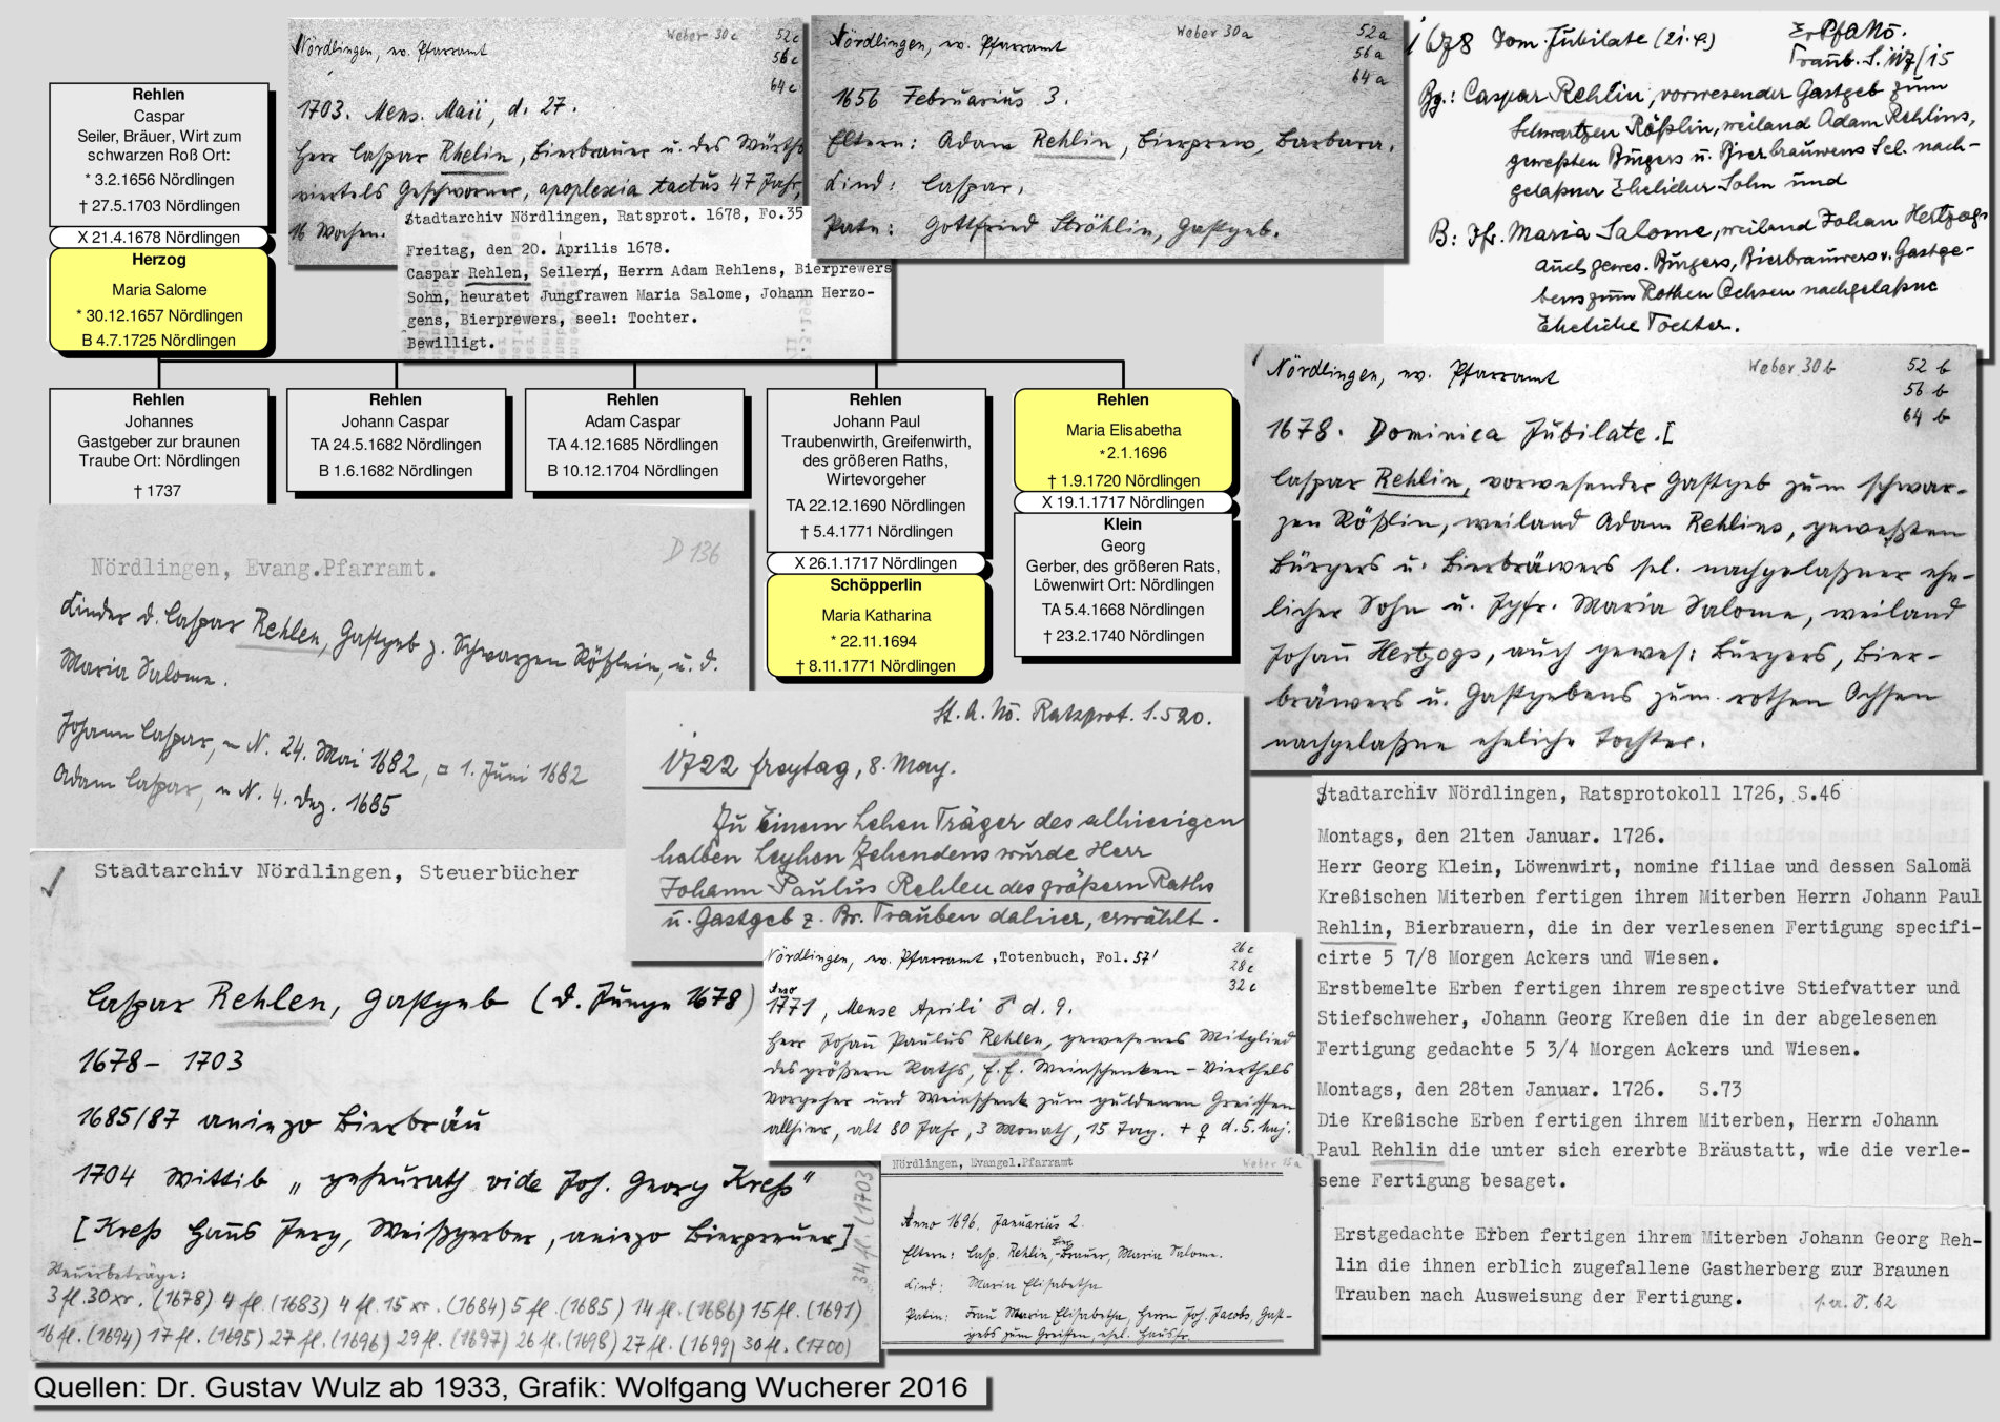 Rehlen
Caspar
Seiler, Bräuer, Wirt zum
schwarzen Roß Ort:
* 3.2.1656 Nördlingen
† 27.5.1703 Nördlingen
X 21.4.1678 Nördlingen
Herzog
Maria Salome
* 30.12.1657 Nördlingen
B 4.7.1725 Nördlingen
Nördlingen, ev. Pfarramt
Weber 30c
52c
56c
64c
1703. Mens. Maii, d. 27.
Herr Caspar Rhelin, Bierbrauer u. des Würth
viertels Geschworner, apoplexia tactus 47 Jahr,
16 Wochen.
Stadtarchiv Nördlingen, Ratsprot. 1678, Fo.35
Freitag, den 20. Aprilis 1678.
Caspar Rehlen, Seiler, Herrn Adam Rehlens, Bierprewers
Sohn, heuratet Jungfrawen Maria Salome, Johann Herzo-
gens, Bierprewers, seel: Tochter.
Bewilligt.
Nördlingen, ev. Pfarramt
Weber 30a
52a
56a
64a
1656 Februarius 3.
Eltern: Adam Rehlin, Bierprew, Barbara.
Kind: Caspar,
Pate: Gottfried Ströhlin, Gastgeb.
1678 Dom. Jubilate (21.4)
Ev.PfANö.
Traub. S. 117/15
Bg.: Caspar Rehlin, vorwesender Gastgeb zum
Schwartzen Rößlin, weiland Adam Rehlins,
geweßten Burgers u. Bierbrauwens Sel. nach-
gelaßner Ehelicher Sohn und
B: Jfr. Maria Salome, weiland Johan Hertzogs
auch gewes. Burgers, Bierbrauwers u. Gastge-
bens zum Rothen Ochsen nachgelaßne
Eheliche Tochter.
Rehlen
Johannes
Gastgeber zur braunen
Traube Ort: Nördlingen
† 1737
Rehlen
Johann Caspar
TA 24.5.1682 Nördlingen
B 1.6.1682 Nördlingen
Rehlen
Adam Caspar
TA 4.12.1685 Nördlingen
B 10.12.1704 Nördlingen
Rehlen
Johann Paul
Traubenwirth, Greifenwirth,
des größeren Raths,
Wirtevorgeher
TA 22.12.1690 Nördlingen
† 5.4.1771 Nördlingen
X 26.1.1717 Nördlingen
Schöpperlin
Maria Katharina
* 22.11.1694
† 8.11.1771 Nördlingen
Rehlen
Maria Elisabetha
* 2.1.1696
† 1.9.1720 Nördlingen
X 19.1.1717 Nördlingen
Klein
Georg
Gerber, des größeren Rats,
Löwenwirt Ort: Nördlingen
TA 5.4.1668 Nördlingen
† 23.2.1740 Nördlingen
Nördlingen, ev. Pfarramt
Weber 30b
52 b
56 b
64 b
1678. Dominica Jubilate.[
Caspar Rehlin, vorwesender Gastgeb zum schwar-
zen Rößlin, weiland Adam Rehlins, geweßten
Bürgers u. Bierbräwers sel. nachgelaßner ehe-
licher Sohn u. Jgfr. Maria Salome, weiland
Johan Hertzogs, auch gewes: Bürgers, Bier-
bräwers u. Gastgebens zum rothen Ochsen
nachgelaßne eheliche Tochter.
D 136
Nördlingen, Evang.Pfarramt.
Kinder d. Caspar Rehlen, Gastgeb z. Schwarzen Rößlein, u. d.
Maria Salome.
Johann Caspar, N. 24. Mai 1682, 1. Juni 1682
Adam Caspar, N. 4. Dez. 1685
St. A. Nö. Ratsprot. S. 520.
1722 freytag, 8. May.
Zu Einem Lehen Träger des alhiesigen
halben Leyhen Zehendens wurde Herr
Johann Paulus Rehlen des größern Raths
u. Gastgeb z. Br. Trauben dahier, erwählt.
Stadtarchiv Nördlingen, Steuerbücher
Caspar Rehlen, Gastgeb (d. Junge 1678)
1678 - 1703
1685/87 aniezo Bierbräu
1704 Wittib „geheurath vide Joh. Georg Kreß"
[Kreß Hans Jerg, Weißgerber, aniezo Bierpreuer]
Steuerbeträge:
3 fl. 30 xr. (1678) 4 fl. (1683) 4 fl. 15 xr. (1684) 5 fl. (1685) 14 fl. (1686) 15 fl. (1691)
16 fl. (1694) 17 fl. (1695) 27 fl. (1696) 29 fl. (1697) 26 fl. (1698) 27 fl. (1699) 30 fl. (1700)
34 fl. (1703)
Nördlingen, ev. Pfarramt, Totenbuch, Fol. 57'
26c
28c
32c
Anno
1771, Mense Aprili ♂ d. 9.
Herr Johan Paulus Rehlen, gewesenes Mitglied
des größern Raths, E.E. Weinschenken-Vierthels
Vorgeher und Weinschenk zum güldenen Greiffen
allhier, alt 80 Jahr, 3 Monath, 15 Tag. + ♀ d. 5. huj.
Nördlingen, Evangel.Pfarramt
Anno 1696. Januarius 2.
Eltern: Casp. Rehlin, Bier-Brauer, Maria Salome.
Kind: Maria Elisabetha
Patin: Frau Maria Elisabetha, Herrn Joh. Jacobs, Gast-
gebs zum Greiffen, ehel. Hausfr.
Stadtarchiv Nördlingen, Ratsprotokoll 1726, S.46
Montags, den 21ten Januar. 1726.
Herr Georg Klein, Löwenwirt, nomine filiae und dessen Salomä
Kreßischen Miterben fertigen ihrem Miterben Herrn Johann Paul
Rehlin, Bierbrauern, die in der verlesenen Fertigung specifi-
cirte 5 7/8 Morgen Ackers und Wiesen.
Erstbemelte Erben fertigen ihrem respective Stiefvatter und
Stiefschweher, Johann Georg Kreßen die in der abgelesenen
Fertigung gedachte 5 3/4 Morgen Ackers und Wiesen.
Montags, den 28ten Januar. 1726. S.73
Die Kreßische Erben fertigen ihrem Miterben, Herrn Johann
Paul Rehlin die unter sich ererbte Bräustatt, wie die verle-
sene Fertigung besaget.
Erstgedachte Erben fertigen ihrem Miterben Johann Georg Reh-
lin die ihnen erblich zugefallene Gastherberg zur Braunen
Trauben nach Ausweisung der Fertigung.
Quellen: Dr. Gustav Wulz ab 1933, Grafik: Wolfgang Wucherer 2016